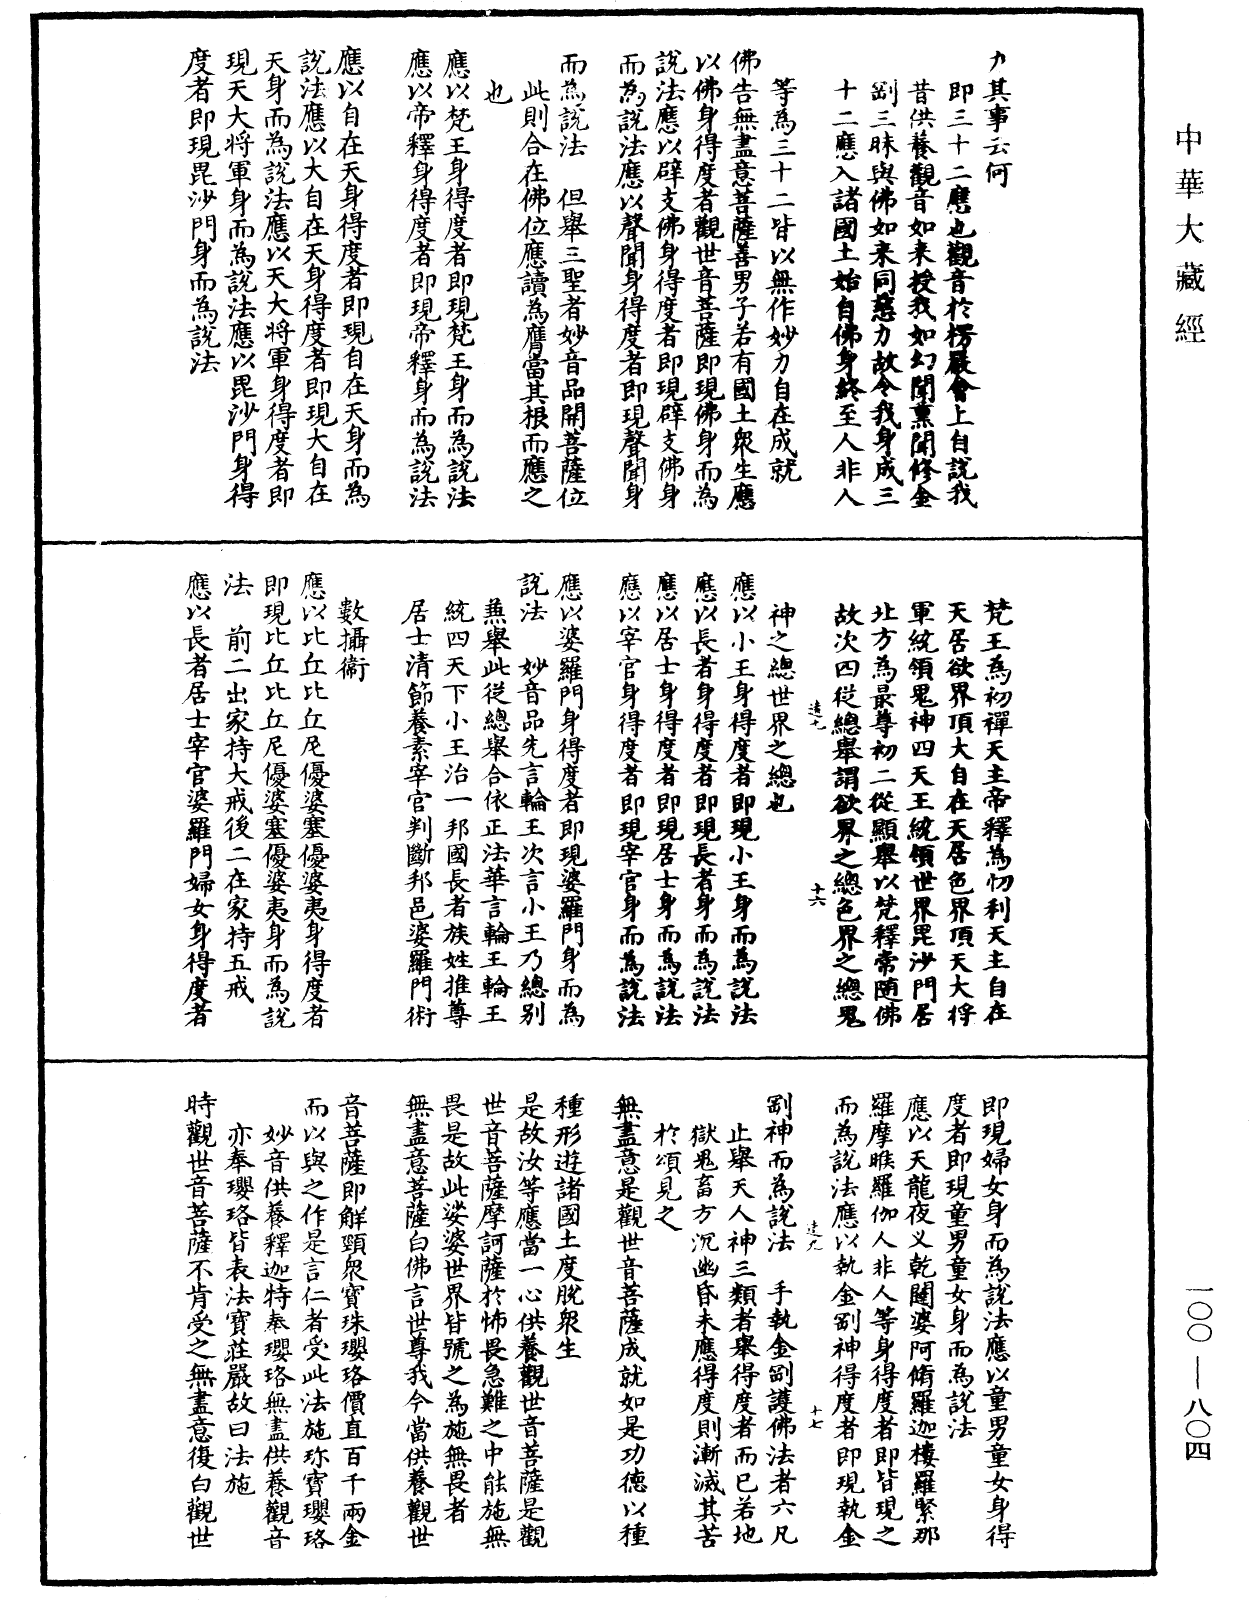 中華大藏經
力其事云何
即三十二應也觀音於楞嚴會上自說我
昔供養觀音如來授我如幻聞熏聞修金
剛三昧與佛如來同慈力故令我身成三
十二應入諸國土始自佛身終至人非人
等為三十二皆以無作妙力自在成就
佛告無盡意菩薩善男子若有國土衆生應
以佛身得度者觀世音菩薩即現佛身而為
說法應以辟支佛身得度者即現辟支佛身
而為說法應以聲聞身得度者即現聲聞身
而為說法　但舉三聖者妙音品開菩薩位
此則合在佛位應讀為膺當其根而應之
也
應以梵王身得度者即現梵王身而為說法
應以帝釋身得度者即現帝釋身而為說法
應以自在天身得度者即現自在天身而為
說法應以大自在天身得度者即現大自在
天身而為說法應以天大將軍身得度者即
現天大將軍身而為說法應以毘沙門身得
度者即現毘沙門身而為說法
梵王為初禪天主帝釋為忉利天主自在
天居欲界頂大自在天居色界頂天大將
軍統領鬼神四天王統領世界毘沙門居
北方為最尊初二從顯舉以梵釋常隨佛
故次四從總舉謂欲界之總色界之總鬼
十六
神之總世界之總也
應以小王身得度者即現小王身而為說法
應以長者身得度者即現長者身而為說法
應以居士身得度者即現居士身而為說法
應以宰官身得度者即現宰官身而為說法
應以婆羅門身得度者即現婆羅門身而為
說法　妙音品先言輪王次言小王乃總別
𠔥舉此從總舉合依正法華言輪王輪王
統四天下小王治一邦國長者族姓推尊
居士清節養素宰官判斷邦邑婆羅門術
數攝衛
應以比丘比丘尼優婆塞優婆夷身得度者
即現比丘比丘尼優婆塞優婆夷身而為說
法　前二出家持大戒後二在家持五戒
應以長者居士宰官婆羅門婦女身得度者
即現婦女身而為說法應以童男童女身得
度者即現童男童女身而為說法
應以天龍夜叉乾闥婆阿脩羅迦樓羅緊那
羅摩睺羅伽人非人等身得度者即皆現之
而為說法應以執金剛神得度者即現執金
十七
剛神而為說法　手執金剛護佛法者六凡
止舉天人神三類者舉得度者而已若地
獄鬼畜方沉幽昏未應得度則漸滅其苦
於頌見之
無盡意是觀世音菩薩成就如是功德以種
種形遊諸國土度脫衆生
是故汝等應當一心供養觀世音菩薩是觀
世音菩薩摩訶薩於怖畏急難之中能施無
畏是故此娑婆世界皆號之為施無畏者
無盡意菩薩白佛言世尊我今當供養觀世
音菩薩即解頸衆寶珠瓔珞價直百千兩金
而以與之作是言仁者受此法施珎寶瓔珞
妙音供養釋迦特奉瓔珞無盡供養觀音
亦奉瓔珞皆表法寶莊嚴故曰法施
時觀世音菩薩不肯受之無盡意復白觀世
一〇〇—八〇四